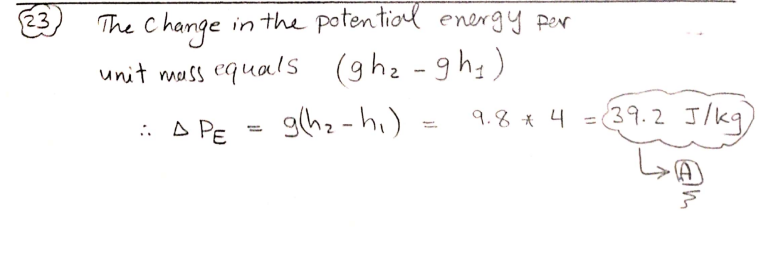 23 The change in the potential energy per
unit mass equals (gh₂ - gh₁)
∴ Δ PE = g(h₂-h₁) = 9.8 * 4 = 39.2 J/kg
↳ A